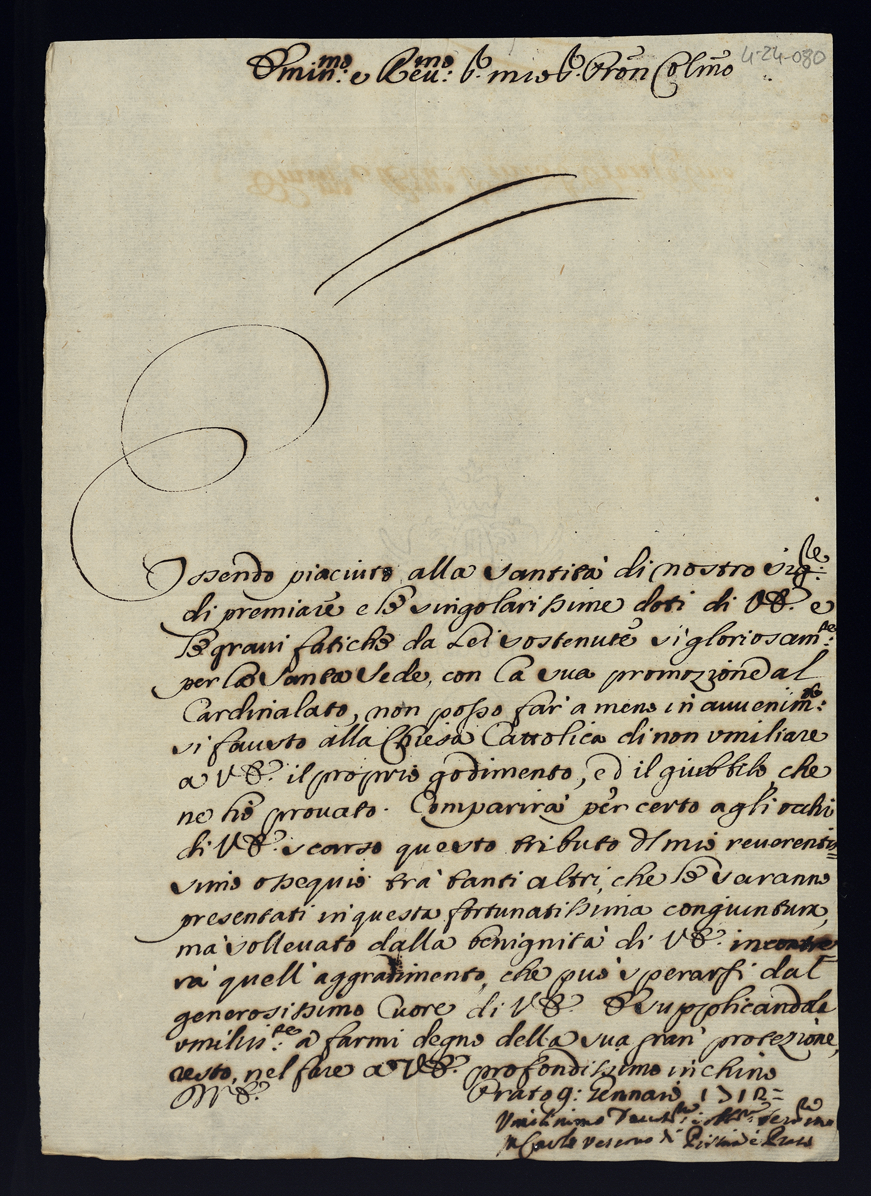 Emin.mo e Reu.mo Sr. mio Sr. Pron Colmo
4-24-080
Essendo piaciuto alla Santità di nostro Sig.re
di premiare e le singolarissime doti di VE. e
le graui fatiche da Lei sostenute si gloriosam.te
per la Santa Sede, con la sua promozione al
Cardinalato, non posso far' a meno in auuenim.to
si fausto alla Chiesa Cattolica di non vmiliare
a VE. il proprio godimento, ed il giubbilo, che
ne hò prouato. Comparirà per certo agl'occhi
di VE. scarso questo tributo del mio reuerentis=
simo ossequio trà tanti altri, che le saranno
presentati in questa fortunatissima congiuntura,
mà solleuato dalla benignità di VE. incontre
rà quell'aggradimento, che può sperarsi dal
generosissimo Cuore di VE. E supplicandola
vmiliss.te à farmi degno della sua gran' protezione,
resto, nel fare a VE. profondissimo inchino
VE. Prato 9: Gennaio 1712=
Vmilissimo Seruo
Vescouo di Pistoia e Prato